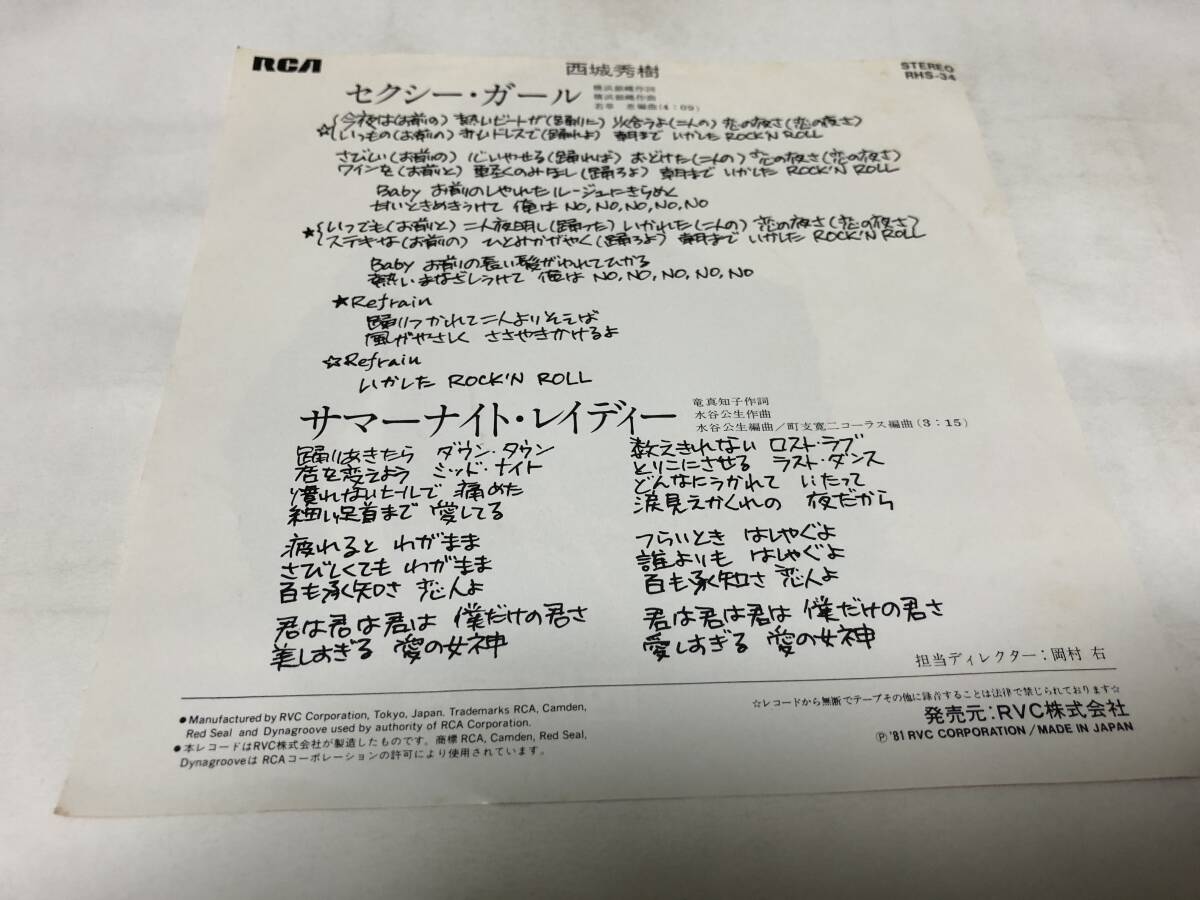 RCA
西城秀樹
STEREO
RHS-34
セクシー・ガール
横浜銀蝿作詞
横浜銀蝿作曲
若草 恵編曲(4:09)
☆{今夜は(お前の) 熱いビートが(踊りに) 火合うよ(二人の) 恋の夜さ(恋の夜さ)
いつもの(お前の) 赤いドレスで(踊れよ) 朝まで いかした ROCK'N ROLL
さびしい(お前の) 心いやせる(踊れば) おどけた(二人の) 恋の夜さ(恋の夜さ)
ワインを(お前と) 軽くのみほし(踊ろよ) 朝まで いかした ROCK'N ROLL
Baby お前のしゃれたルージュにきらめく
甘いときめきうけて 俺は NO, NO, NO, NO, NO
★{いつでも(お前と) 二人夜明し(踊った) いかれた(二人の) 恋の夜さ(恋の夜さ)}
ステキな(お前の) ひとみかがやく(踊ろよ) 朝まで いかした ROCK'N ROLL
Baby お前の長い髪がぬれてひかる
熱いまなざしうけて 俺は NO, NO, NO, NO, NO
★Refrain
踊りつかれて二人よりそえば
風がやさしく ささやきかけるよ
☆Refrain
いかした ROCK'N ROLL
サマーナイト・レイディー
竜真知子作詞
水谷公生作曲
水谷公生編曲/町支寛二コーラス編曲(3:15)
踊りあきたら ダウン・タウン
店を変えよう ミッド・ナイト
慣れないヒールで 痛めた
細い足首まで 愛してる
疲れると わがまま
さびしくても わがまま
百も承知さ 恋人よ
君は君は君は 僕だけの君さ
美しすぎる 愛の女神
数えきれない ロスト・ラブ
とりこにさせる ラスト・ダンス
どんなにうかれて いたって
涙見えかくれの 夜だから
つらいとき はしゃぐよ
誰よりも はしゃぐよ
百も承知さ 恋人よ
君は君は君は 僕だけの君さ
愛しすぎる 愛の女神
担当ディレクター:岡村 右
●Manufactured by RVC Corporation, Tokyo, Japan. Trademarks RCA, Camden,
Red Seal and Dynagroove used by authority of RCA Corporation.
●本レコードはRVC株式会社が製造したものです。商標 RCA, Camden, Red Seal,
Dynagrooveは RCAコーポレーションの許可により使用されています。
☆レコードから無断でテープその他に録音することは法律で禁じられております☆
発売元:RVC株式会社
Ⓟ'81 RVC CORPORATION/MADE IN JAPAN